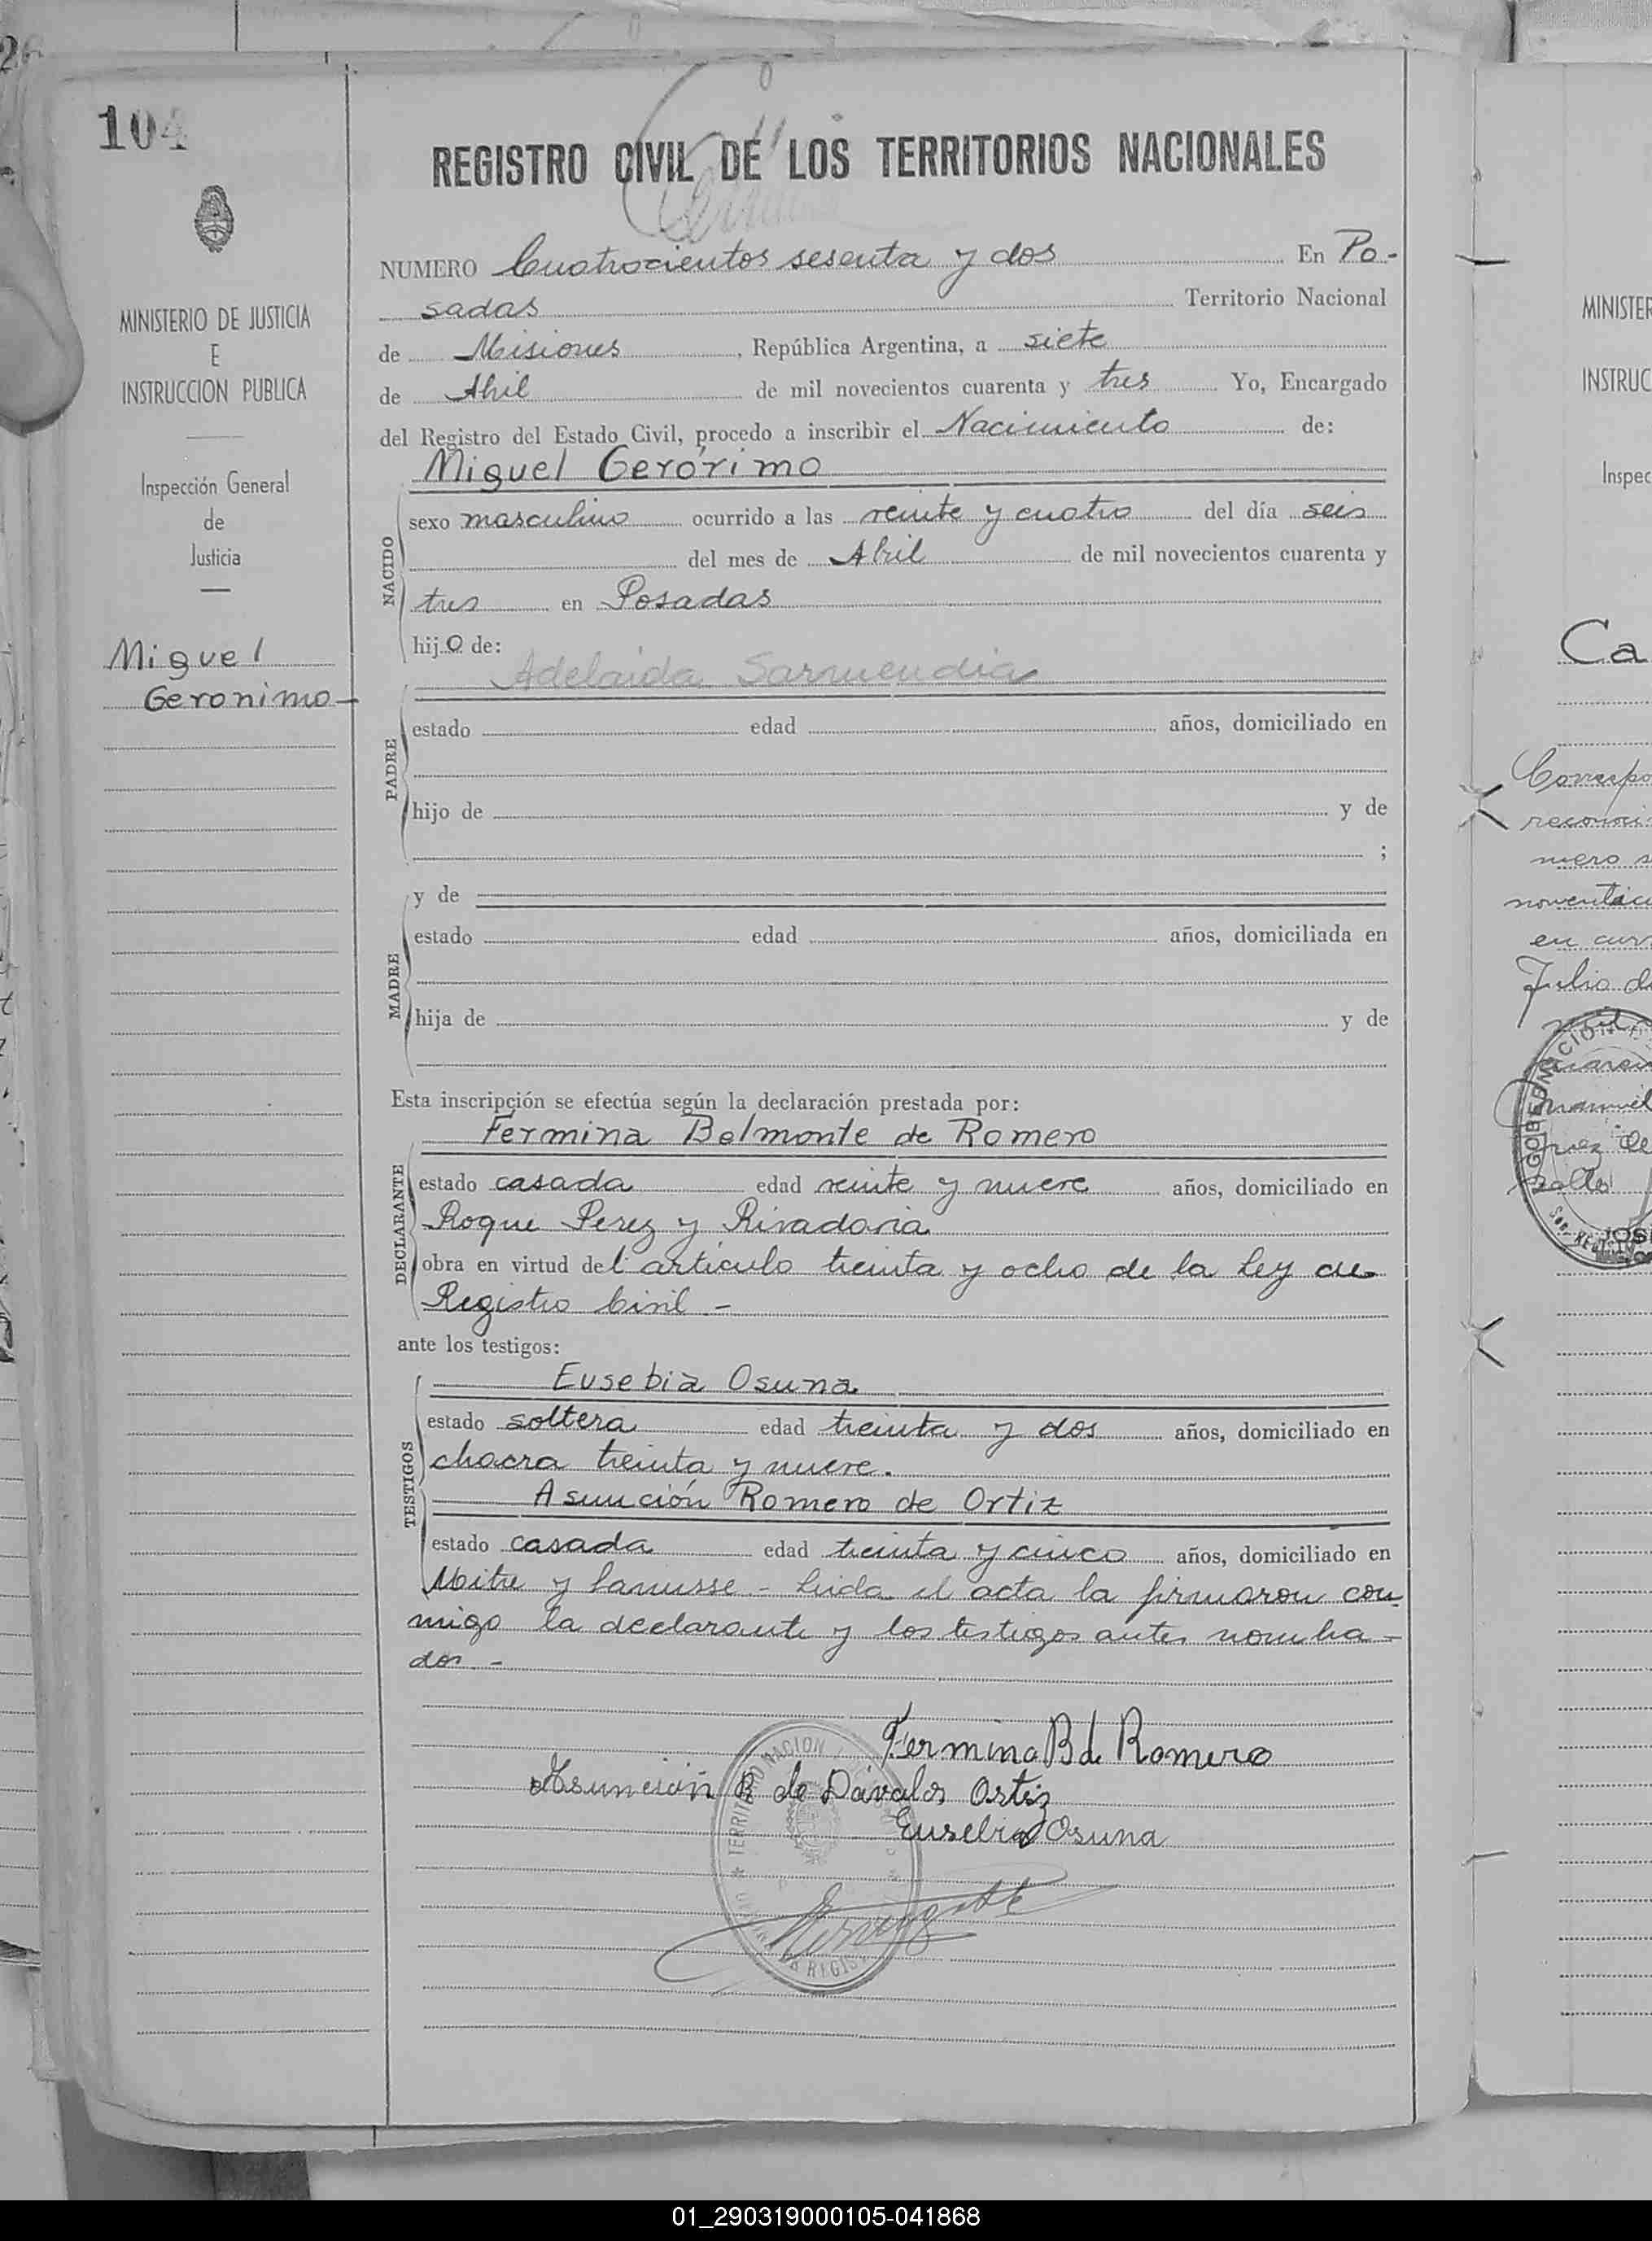 104
REGISTRO CIVIL DE LOS TERRITORIOS NACIONALES
MINISTERIO DE JUSTICIA
E
INSTRUCCION PUBLICA
Inspección General
de
Justicia
Miguel
Geronimo
NUMERO Cuatrocientos sesenta y dos En Po-
sadas Territorio Nacional
de Misiones, República Argentina, a siete
de Abril de mil novecientos cuarenta y tres Yo, Encargado
del Registro del Estado Civil, procedo a inscribir el Nacimiento de:
Miguel Gerónimo
NACIDO
sexo masculino ocurrido a las veinte y cuatro del día seis
del mes de Abril de mil novecientos cuarenta y
tres en Posadas
hijo de:
Adelaida Sarmendia
PADRE
estado edad años, domiciliado en
hijo de y de
;
MADRE
y de
estado edad años, domiciliada en
hija de y de
Esta inscripción se efectúa según la declaración prestada por:
DECLARANTE
Fermina Belmonte de Romero
estado casada edad veinte y nueve años, domiciliado en
Roque Perez y Rivadavia
obra en virtud del artículo treinta y ocho de la Ley de
Registro Civil -
ante los testigos:
TESTIGOS
Eusebia Osuna
estado soltera edad treinta y dos años, domiciliado en
chacra treinta y nueve.
Asunción Romero de Ortiz
estado casada edad treinta y cinco años, domiciliado en
Mitre y Lanusse - Leída el acta la firmaron con-
migo la declarante y los testigos antes nombra-
dos -
Fermina B de Romero
Asunción R de Dávalos Ortiz
Eusebia Osuna
MINISTER
INSTRUC
Inspec
Ca
Julio d
01_290319000105-041868